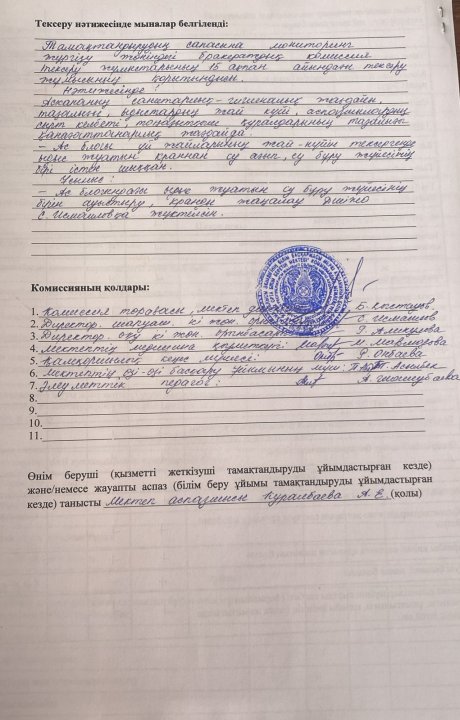 Тексеру нәтижесінде мыналар белгіленді:
Тамақтандырудың сапасына мониторинг
жүргізу жөніндегі бракераждық комиссия
тексеру жұмыстарының 15 ақпан айындағы тексеру
жұмысының қорытындысы.
Нәтижесінде:
Асхананың санитарлық-гигиеналық жағдайы,
тазалығы, ыдыстардың жай күйі, аспазшылардың
сырт келбеті, тоңазытқыш құралдарының тазалығы
қанағаттанарлық жағдайда.
- Ас блогы үй жайларының жай-күйін тексергенде
ыдыс жуатын краннан су ағып, су бұру жүйесінің
бірі істен шыққан.
Ұсыныс:
- Ас блогындағы ыдыс жуатын су бұру жүйесінің
бірін ауыстыру, кранды жаңалау ДШІЖО
С. Исмаиловқа жүктелсін.
Комиссияның қолдары:
1. Комиссия төрағасы, мектеп Б. Қыстауов
2. Директор. шаруаш. іс жөн. С. Исмаилов
3. Директор. оқу іс жөн. орынбасары Г. Аликулова
4. Мектептің медицина қызметкері: М. Мавлюдова
5. Қамқоршылық кеңес мүшесі: Р. Онбаева
6. Мектептің өзі-өзі басқару ұйымының мүш: Т. Асылбек
7. Әлеуметтік педагог: А.
8.
9.
10.
11.
Өнім беруші (қызметті жеткізуші тамақтандыруды ұйымдастырған кезде)
және/немесе жауапты аспаз (білім беру ұйымы тамақтандыруды ұйымдастырған
кезде) танысты Мектеп аспазшысы Құралбаева А.Е. (қолы)